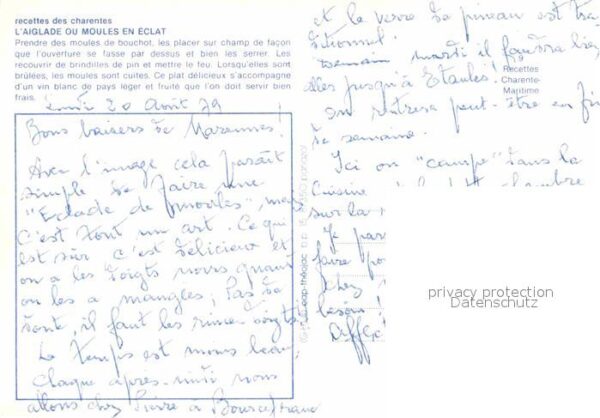 recettes des charentes
L'AIGLADE OU MOULES EN ÉCLAT
Prendre des moules de bouchot, les placer sur champ de façon
que l'ouverture se fasse par dessus et bien les serrer. Les
recouvrir de brindilles de pin et mettre le feu. Lorsqu'elles sont
brûlées, les moules sont cuites. Ce plat délicieux s'accompagne
d'un vin blanc de pays léger et fruité que l'on doit servir bien
frais.
Lundi 20 Août 79
Bons baisers de Marennes!
Avec l'image cela paraît
simple de faire une
"Eclade de moules", mais
c'est tout un art. Ce qui
est sûr c'est délicieux et
on a les doigts noirs quand
on les a mangées; Pas de
dont, il faut les rince doigts
Le temps est moins beau
chaque après-midi nous
allons chez Pierre à Bourcefranc
et le verre de pineau est tra-
ditionnel.
mardi il faudra
aller jusqu'à Etaules!
on rentrera peut-être en fin
de semaine.
Ici on "campe" dans la
cuisine chambre
sur la
Je par
faire po
chez
besoin!
Affec
N° 9
Recettes
Charente-
Maritime
privacy protection
Datenschutz